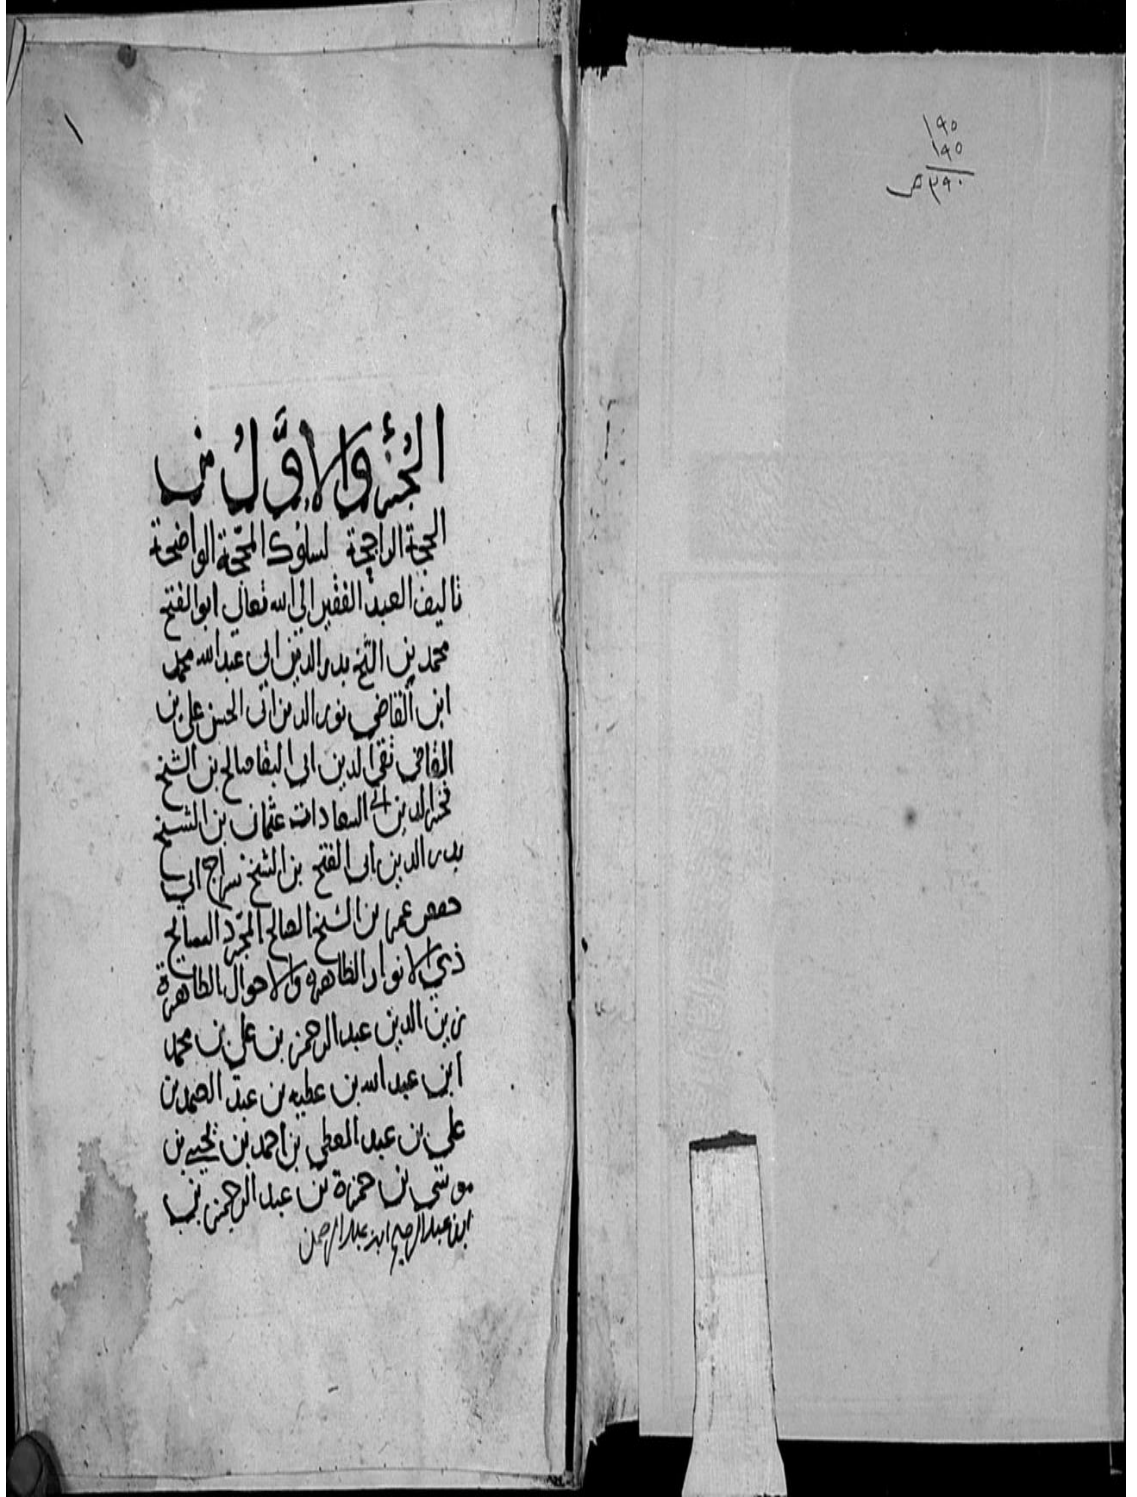 ١٩٥
١٩٥
٣٩٠ ص
١
الجُزْءُ والاوَّلُ من
الحجة الراجحة لسلوك المحجّة الواضحة
تاليف العبد الفقير الى الله تعالى ابو الفتح
محمد بن الشيخ بدر الدين ابي عبد الله محمد
ابن القاضي نور الدين ابي الحسن علي بن
القاضي تقي الدين ابي البقا صالح بن الشيخ
فخر الدين ابي السعادات عثمان بن الشيخ
بدر الدين ابي الفتح بن الشيخ سراج ابي
حفص عمر بن الشيخ الصالح المجرّد السايح
ذي الانوار الظاهره والاحوال الطاهرة
زين الدين عبد الرحمن بن علي بن محمد
ابن عبد الله بن عطيه بن عبد الصمد بن
علي بن عبد المعطي بن احمد بن يحيى بن
موسى بن حمزة بن عبد الرحمن بن
ابن عبد الرحيم ابن عبد الرحمن